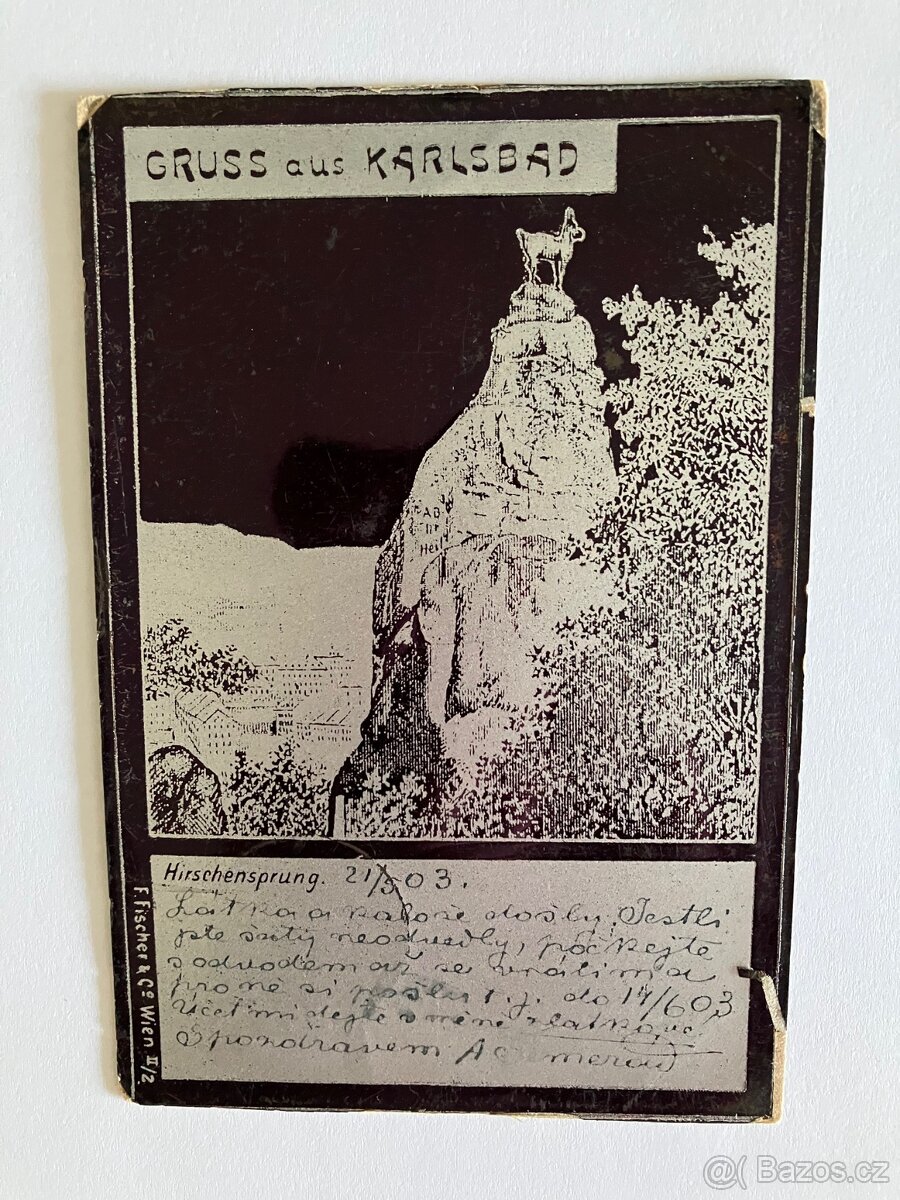 GRUSS aus KARLSBAD
Hirschensprung. 21/5 03.
Látka a kaloše došly. Jestli
jste šaty neodvedly, počkejte
s odvodem až se vrátím a
pro ně si pošlu t.j. do 14/6 03
Účet mi dejte
S pozdravem
F. Fischer & Co Wien II/2.
@( Bazos.cz